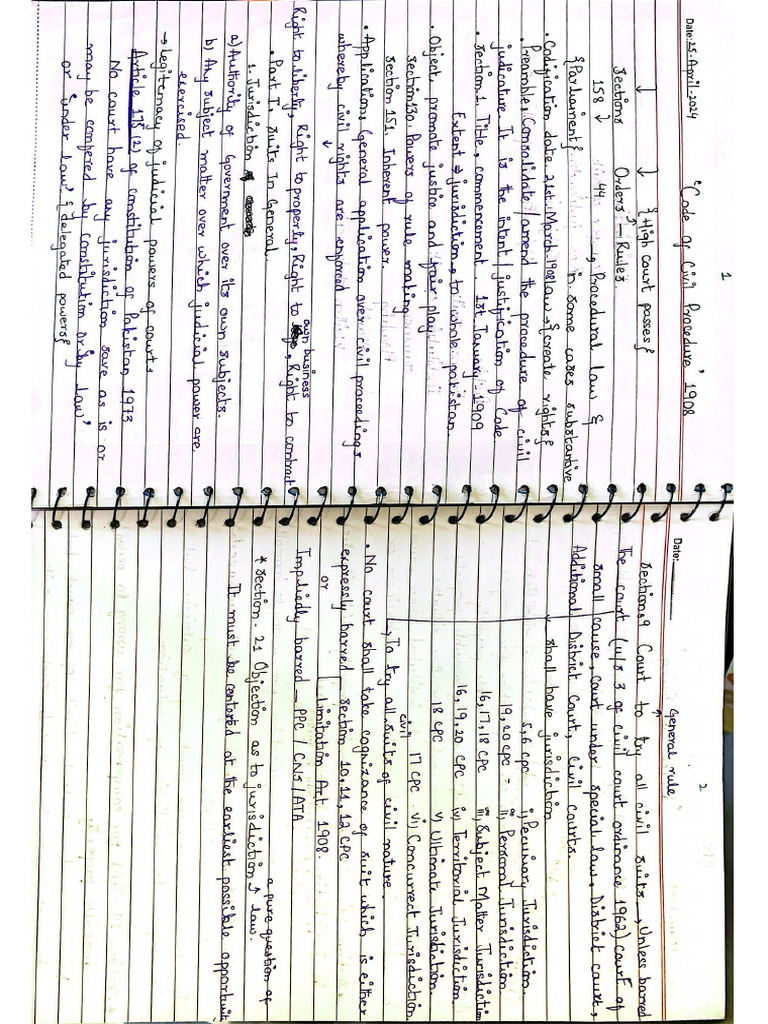 Date: 25-April-2024
1
"Code of Civil Procedure" 1908
↓ ↓ {High court passes}
Sections Orders → Rules
158 ↓ 44, Procedural law &
{Parliament} in some cases substantive
• Codification date, 21st March, 1908 law → {create rights}
• Preamble: Consolidate/amend the procedure of civil
judicature. It is the intent/justification of Code
• Section. 1. Title, commencement. 1st January. 1909
Extent → jurisdiction → to whole pakistan.
• Object, promote justice and fair play
section 130. Powers of rule making
section 151. Inherent power
• Application, General application over civil proceedings
whereby civil rights are enforced
own business
Right to liberty, Right to property, Right to, Right to contract
• Part I. suits In General.
1. Jurisdiction
a) Authority of Government over its own subjects.
b) Any subject matter over which judicial power are
exercised.
→ legitemacy of judicial powers of courts
Article 175 (2) of constitution of Pakistan, 1973
No court have any jurisdiction save as is or
may be confered by constitution or by law'
or 'under law' {delegated powers}
Date:
2
General rule
section: 9 Court to try all civil suits, Unless barred
The court (u/s 3 of civil court ordinance 1962) court of
small cause, court under special law, District court,
Additional District court, civil courts.
↳ shall have jurisdiction
5,6 cpc i) Pecuniary Jurisdiction.
19,20 cpc - ii) Personal Jurisdiction.
16,17,18 cpc iii) Subject Matter Jurisdiction
16,19,20 cpc iv) Territorial Jurisdiction
18 cpc v) Ultimate Jurisdiction.
17 cpc vi) Concurrect Jurisdiction.
civil
→ To try all suits of civil nature.
• No court shall take cognizance of suit which is either
expressly barred section 10,11,12 CPC
or Limitation Act 1908.
Impliedly barred - PPC / CNS / ATA.
a pure question of
* Section. 21 Objection as to jurisdiction law.
It must be contented at the earliest possible opportunit